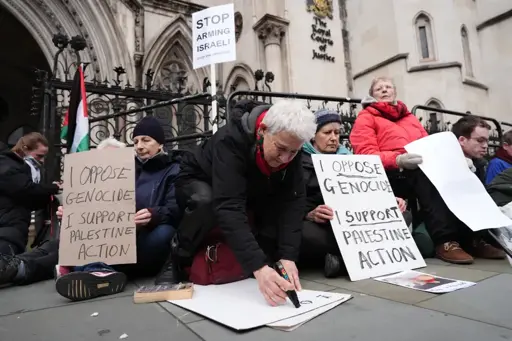 STOP
ARMING
ISRAELI
The Royal
Courts
of Justice
I OPPOSE
GENOCIDE
I SUPPORT
PALESTINE
ACTION
I OPPOSE
GENOCIDE
I SUPPORT
PALESTINE
ACTION